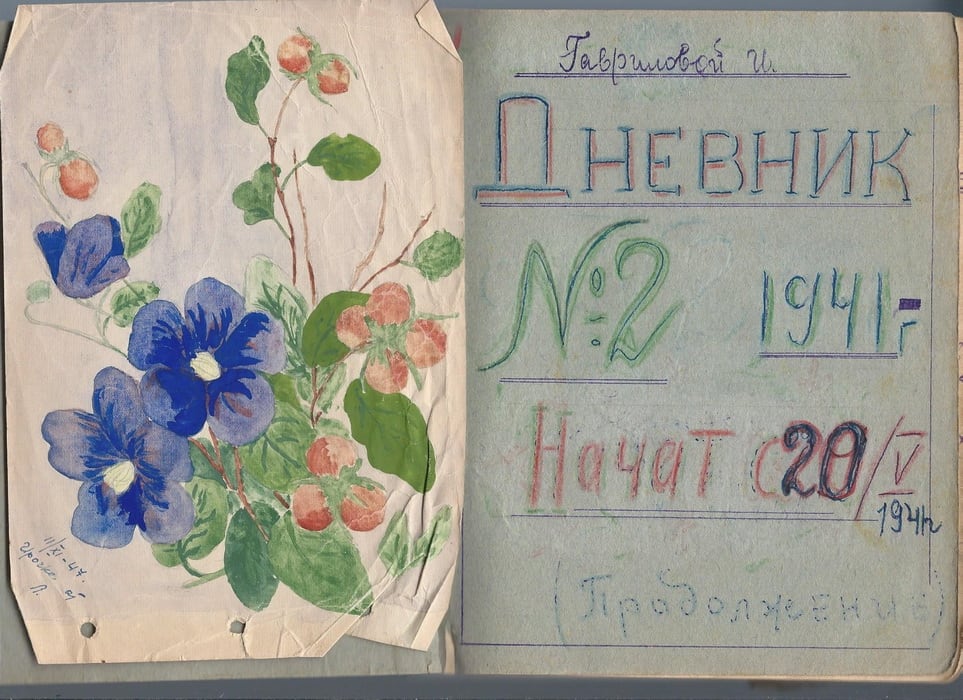 11/XI-47.
Ирочке
Л.
Гавриловой И.
Дневник
№2 1941 г
Начат с 20/V
1941г
(Продолжение)